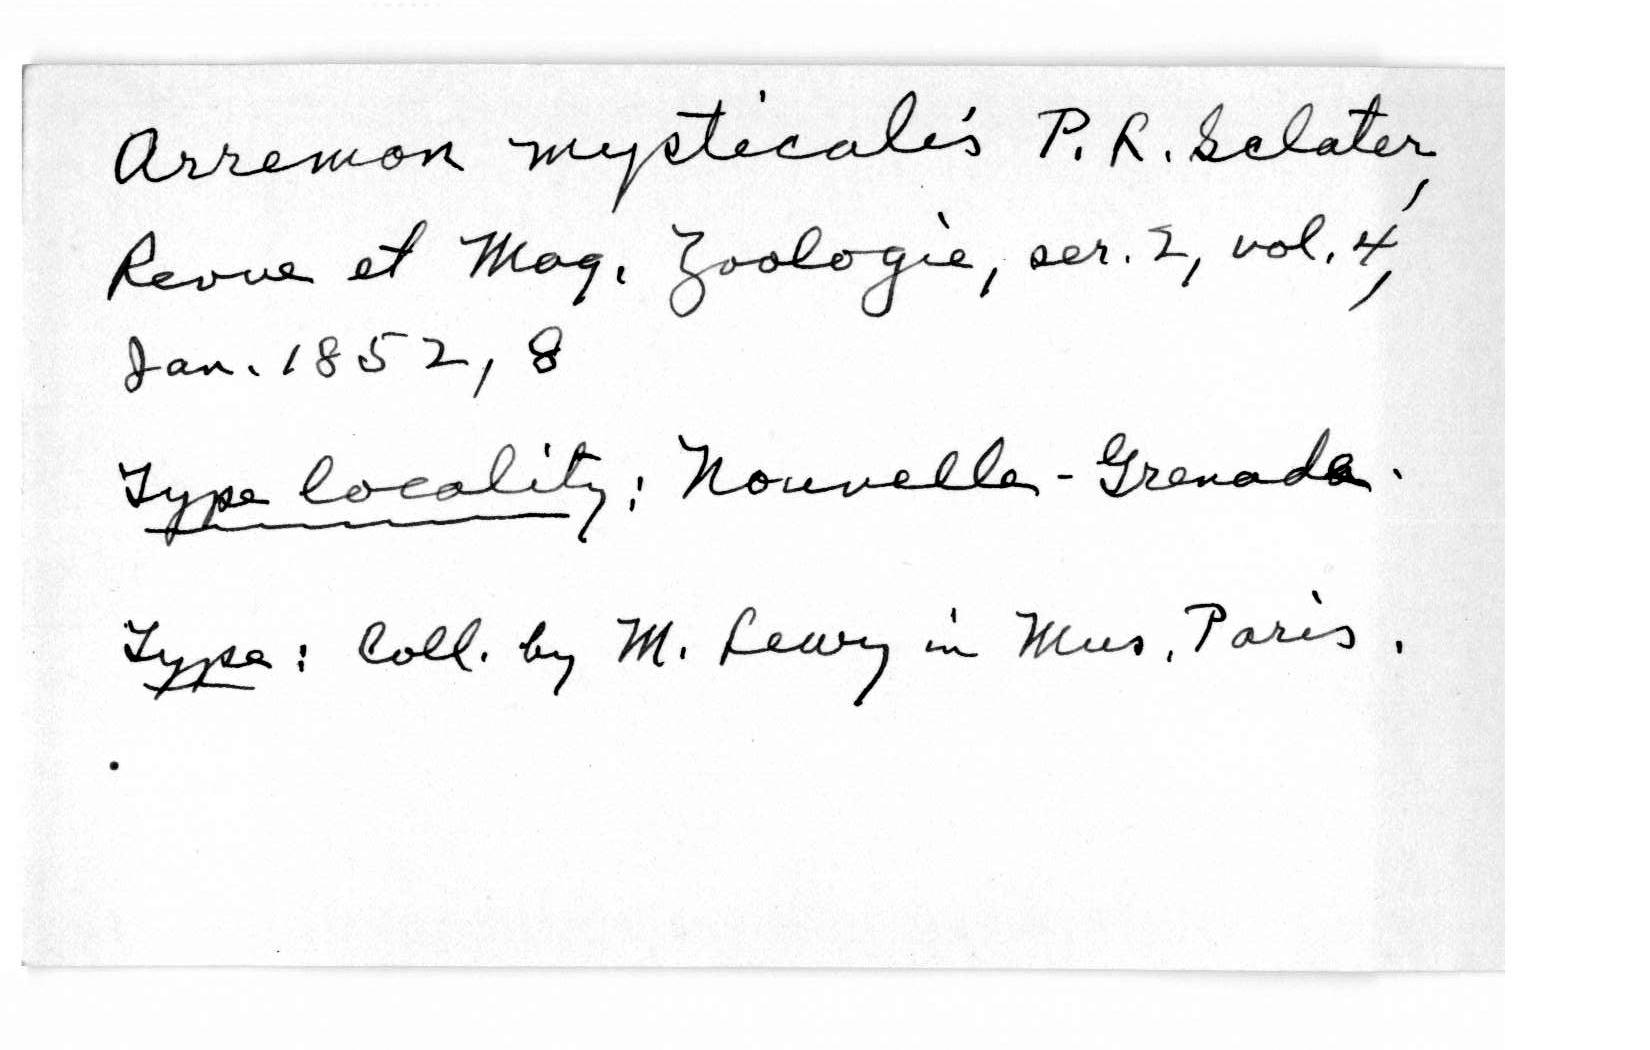 Arremon mysticalis P. R. Sclater,
Revue et Mag. Zoologie, ser. 2, vol. 4,
Jan. 1852, 8
Type locality: Nouvelle-Grenada.
Type: Coll. by M. Lewy in Mus. Paris.